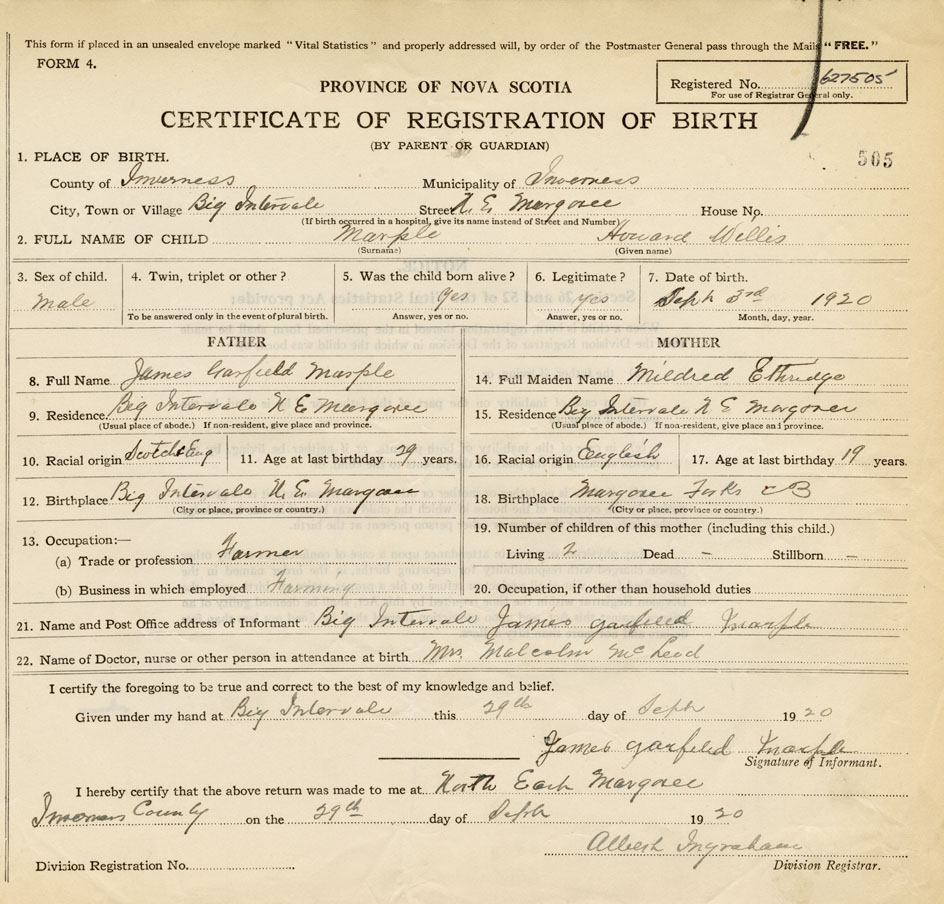 This form if placed in an unsealed envelope marked "Vital Statistics" and properly addressed will, by order of the Postmaster General pass through the Mails "FREE."
FORM 4.
Registered No. 627505
For use of Registrar General only.
PROVINCE OF NOVA SCOTIA
CERTIFICATE OF REGISTRATION OF BIRTH
(BY PARENT OR GUARDIAN)
505
1. PLACE OF BIRTH.
County of Inverness Municipality of Inverness
City, Town or Village Big Intervale Street N. E. Margaree House No.
(If birth occurred in a hospital, give its name instead of Street and Number)
2. FULL NAME OF CHILD Marple Howard Willis
(Surname) (Given name)
3. Sex of child. 4. Twin, triplet or other? 5. Was the child born alive? 6. Legitimate? 7. Date of birth.
Male yes yes Sept 3rd 1920
To be answered only in the event of plural birth. Answer, yes or no. Answer, yes or no. Month, day, year.
FATHER
8. Full Name James Garfield Marple
9. Residence Big Intervale N E Margaree
(Usual place of abode.) If non-resident, give place and province.
10. Racial origin Scotch Eng 11. Age at last birthday 29 years.
12. Birthplace Big Intervale N. E. Margaree
(City or place, province or country.)
13. Occupation:—
(a) Trade or profession Farmer
(b) Business in which employed Farming
MOTHER
14. Full Maiden Name Mildred Ethridge
15. Residence Big Intervale N E Margaree
(Usual place of abode.) If non-resident, give place and province.
16. Racial origin English 17. Age at last birthday 19 years.
18. Birthplace Margaree Forks CB
(City or place, province or country.)
19. Number of children of this mother (including this child.)
Living 2 Dead – Stillborn –
20. Occupation, if other than household duties
21. Name and Post Office address of Informant Big Intervale James Garfield Marple
22. Name of Doctor, nurse or other person in attendance at birth Mrs. Malcolm McLeod
I certify the foregoing to be true and correct to the best of my knowledge and belief.
Given under my hand at Big Intervale this 29th day of Sept 1920
James Garfield Marple
Signature of Informant.
I hereby certify that the above return was made to me at North East Margaree
Inverness County on the 29th day of Sept 1920
Albert Ingraham
Division Registration No. Division Registrar.